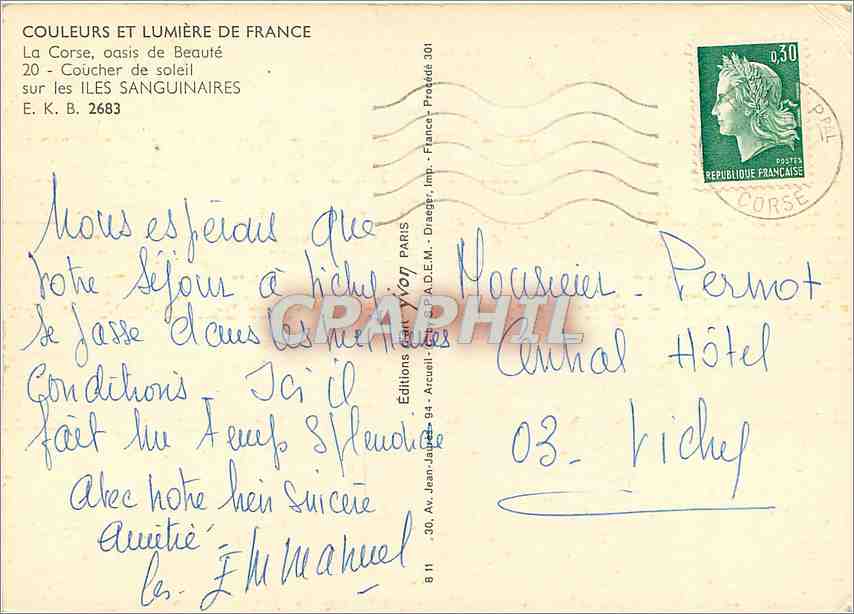 COULEURS ET LUMIÈRE DE FRANCE
La Corse, oasis de Beauté
20 - Coücher de soleil
sur les ILES SANGUINAIRES
E. K. B. 2683
Nous espérons que
votre séjour à Vichy
se fasse dans les meilleures
Conditions - Ici il
fait un temps splendide
Avec notre bien sincère
Amitié
les Emmanuel
Editions d'art yvon PARIS
30, Av. Jean-Jaurès - 94 - Arcueil - S.P.A.D.E.M. - Draeger, Imp. - France - Procédé 301
B 11
0,30
POSTES
REPUBLIQUE FRANÇAISE
PPAL
CORSE
Monsieur Permot
Central Hôtel
03 - Vichy
CPAPHIL